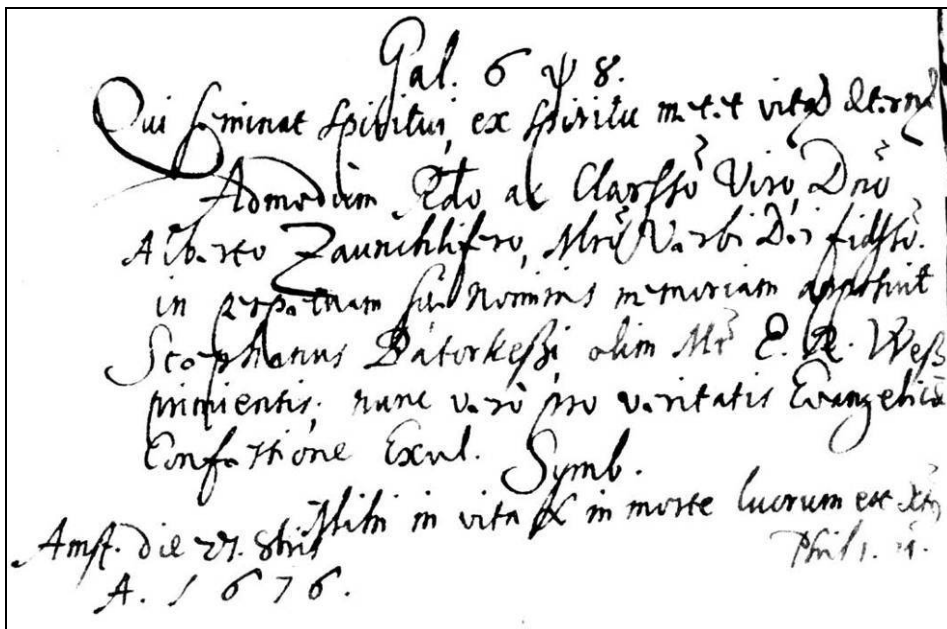 Gal. 6 ℣ 8.
Qui seminat Spiritui, ex Spiritu metet vitā æternā
Admodum Rdo ac Clarisso Viro, Dno
Alberto, Mro Verbi Dei fidisso.
in perpetuam sui nominis memoriam apposuit
Stephanus Batorkeßi, olim Mr E. R. Weß
primientis; nunc verò pro veritatis Evangelicæ
Confessione Exul. Symb.
Mihi in vita & in morte lucrum est Xtus
Amst. die 27. 8bris Phil 1. 21.
A. 1676.